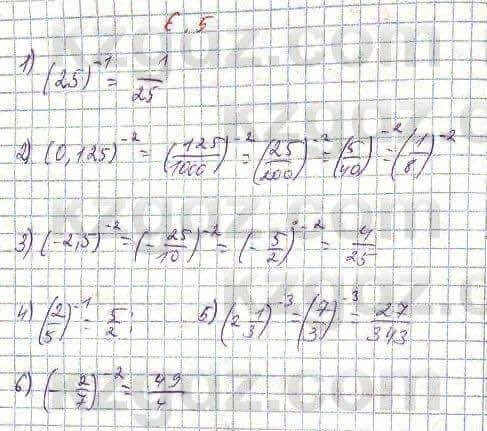 6.5
1) (25)^-1 = 1/25
2) (0,125)^-2 = (125/1000)^-2 = (25/200)^-2 = (5/40)^-2 = (1/8)^-2
3) (-2,5)^-2 = (-25/10)^-2 = (-5/2)^-2 = 4/25
4) (2/5)^-1 = 5/2 5) (2 1/3)^-3 = (7/3)^-3 = 27/343
6) (-2/7)^-2 = 49/4
kzgaz.com